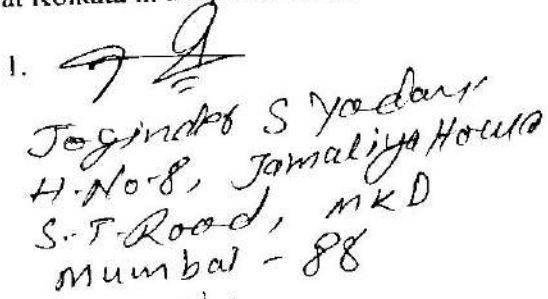 at Kolkata in
1.
Joginder S Yadav
H.No-8, Jamaliya House
S.T-Road, MKD
Mumbai - 88